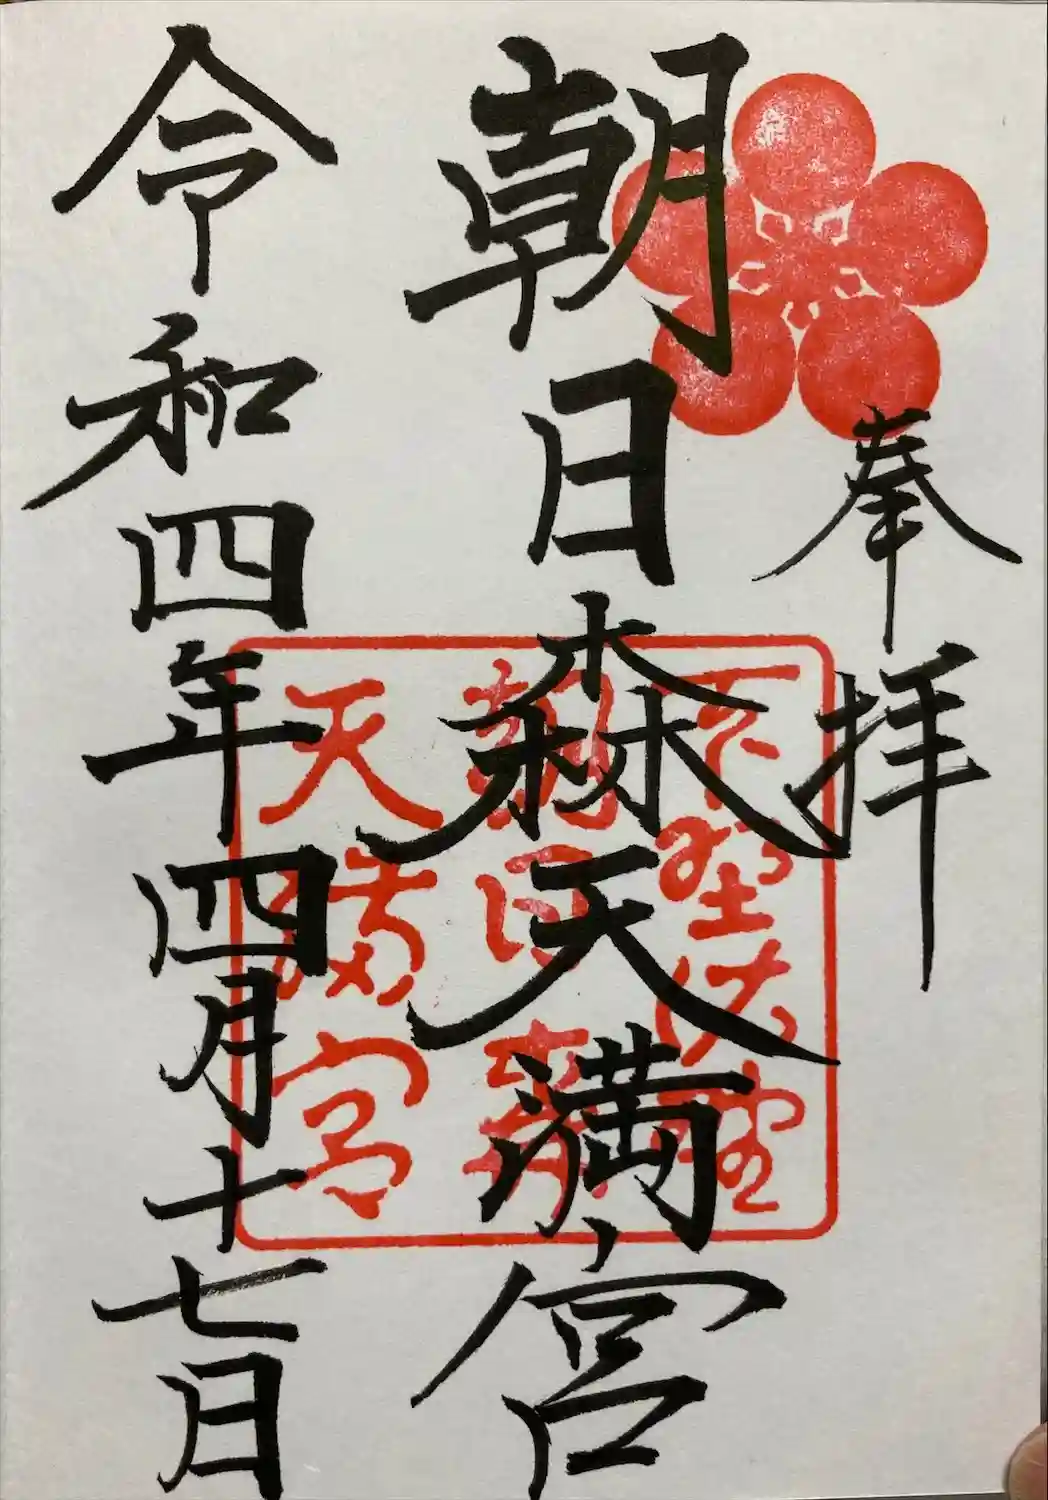 奉拝
朝日森天満宮
令和四年四月十七日
下野佐野
朝日森
天満宮